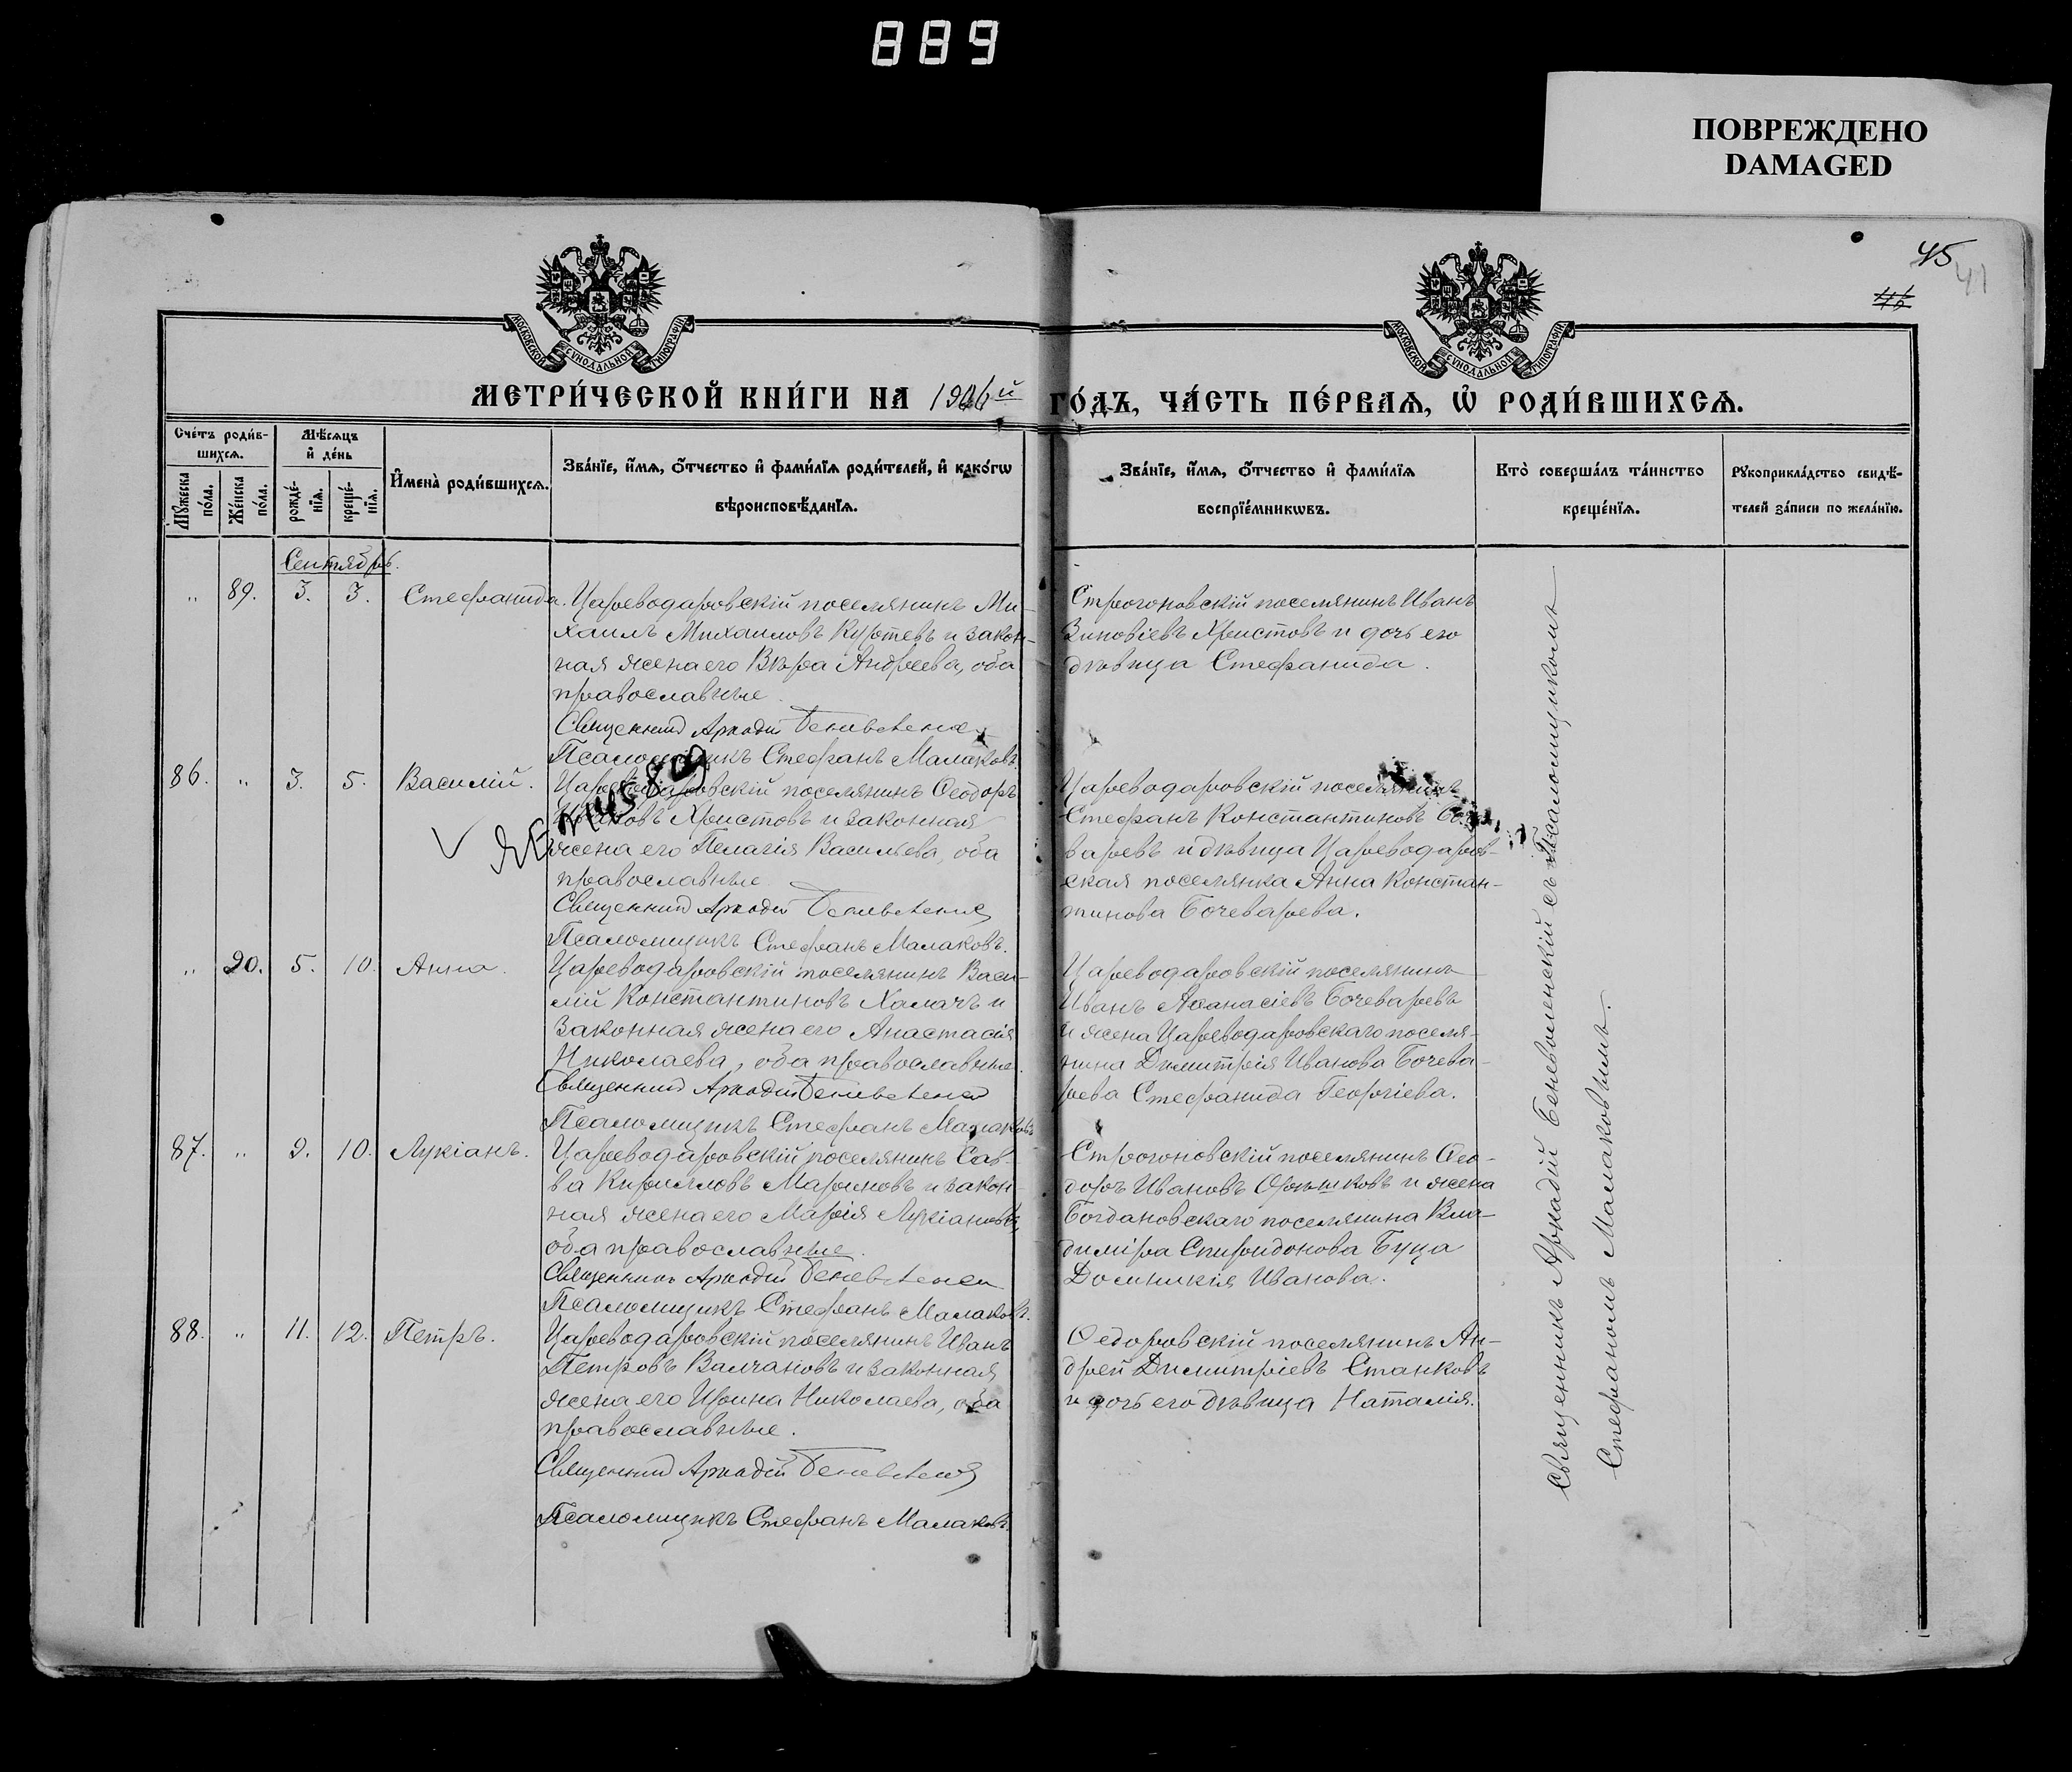 889
ПОВРЕЖДЕНО
DAMAGED
45
41
46
МОСКОВСКОЙ СѴНОДАЛЬНОЙ ТИПОГРАФІИ
МОСКОВСКОЙ СѴНОДАЛЬНОЙ ТИПОГРАФІИ
МЕТРИ́ЧЕСКОЙ КНИ́ГИ НА 1906й ГО́ДЪ, ЧА́СТЬ ПЕ́РВАѦ, Ѡ҆ РОДИ́ВШИХСѦ.
Сче́тъ роди́в-
шихсѧ.
Мꙋжеска по́ла.
Же́нска по́ла.
Мѣ́сѧцъ
и҆ де́нь
рожде́-
нїѧ.
креще́-
нїѧ.
И҆мена̀ роди́вшихсѧ.
Зва́нїе, и҆́мѧ, ѻ҆́тчество и҆ фами́лїѧ роди́телей, и҆ како́гѡ
вѣроисповѣ́данїѧ.
Зва́нїе, и҆́мѧ, ѻ҆́тчество и҆ фами́лїѧ
воспрїе́мникѡвъ.
Кто̀ соверша́лъ та́инство
креще́нїѧ.
Рꙋкоприкла́дство свидѣ́-
телей за́писи по жела́нїю.
Сентябрь.
" 89. 3. 3. Стефанида.
Цареводаровскій поселянинъ Ми-
хаилъ Михаиловъ Куртевъ и закон-
ная жена его Вѣра Андреева, оба
православные.
Священникъ Аркадій Беневоленскій
Псаломщикъ Стефанъ Малаковъ.
Строгоновскій поселянинъ Иванъ
Зиновіевъ Христовъ и дочь его
дѣвица Стефанида.
86. " 3. 5. Василій.
Цареводаровскій поселянинъ Ѳеодоръ
Христовъ и законная
жена его Пелагія Васильева, оба
православные.
Священникъ Аркадій Беневоленскій
Псаломщикъ Стефанъ Малаковъ.
Цареводаровскій поселянинъ
Стефанъ Константиновъ Боче-
варевъ и дѣвица Цареводаров-
ская поселянка Анна Констан-
тинова Бочеварева.
" 90. 5. 10. Анна.
Цареводаровскій поселянинъ Васи-
лій Константиновъ Халачъ и
законная жена его Анастасія
Николаева, оба православные.
Священникъ Аркадій Беневоленскій
Псаломщикъ Стефанъ Малаковъ
Цареводаровскій поселянинъ
Иванъ Аѳанасіевъ Бочеваревъ
и жена Цареводаровскаго поселя-
нина Димитрія Иванова Бочева-
рева Стефанида Георгіева.
87. " 9. 10. Лукіанъ.
Цареводаровскій поселянинъ Сав-
ва Кирилловъ Мариновъ и закон-
ная жена его Марія Лукіанова,
оба православные.
Священникъ Аркадій Беневоленскій
Псаломщикъ Стефанъ Малаковъ.
Строгоновскій поселянинъ Ѳео-
доръ Ивановъ Орѣшковъ и жена
Богдановскаго поселянина Вла-
димира Спиридонова Буца
Домникія Иванова.
88. " 11. 12. Петръ.
Цареводаровскій поселянинъ Иванъ
Петровъ Валчановъ и законная
жена его Ирина Николаева, оба
православные.
Священникъ Аркадій Беневоленскій
Псаломщикъ Стефанъ Малаковъ.
Ѳедоровскій поселянинъ Ан-
дрей Димитріевъ Станковъ
и дочь его дѣвица Наталія.
Священникъ Аркадій Беневоленскій съ Псаломщикомъ
Стефаномъ Малаковымъ.